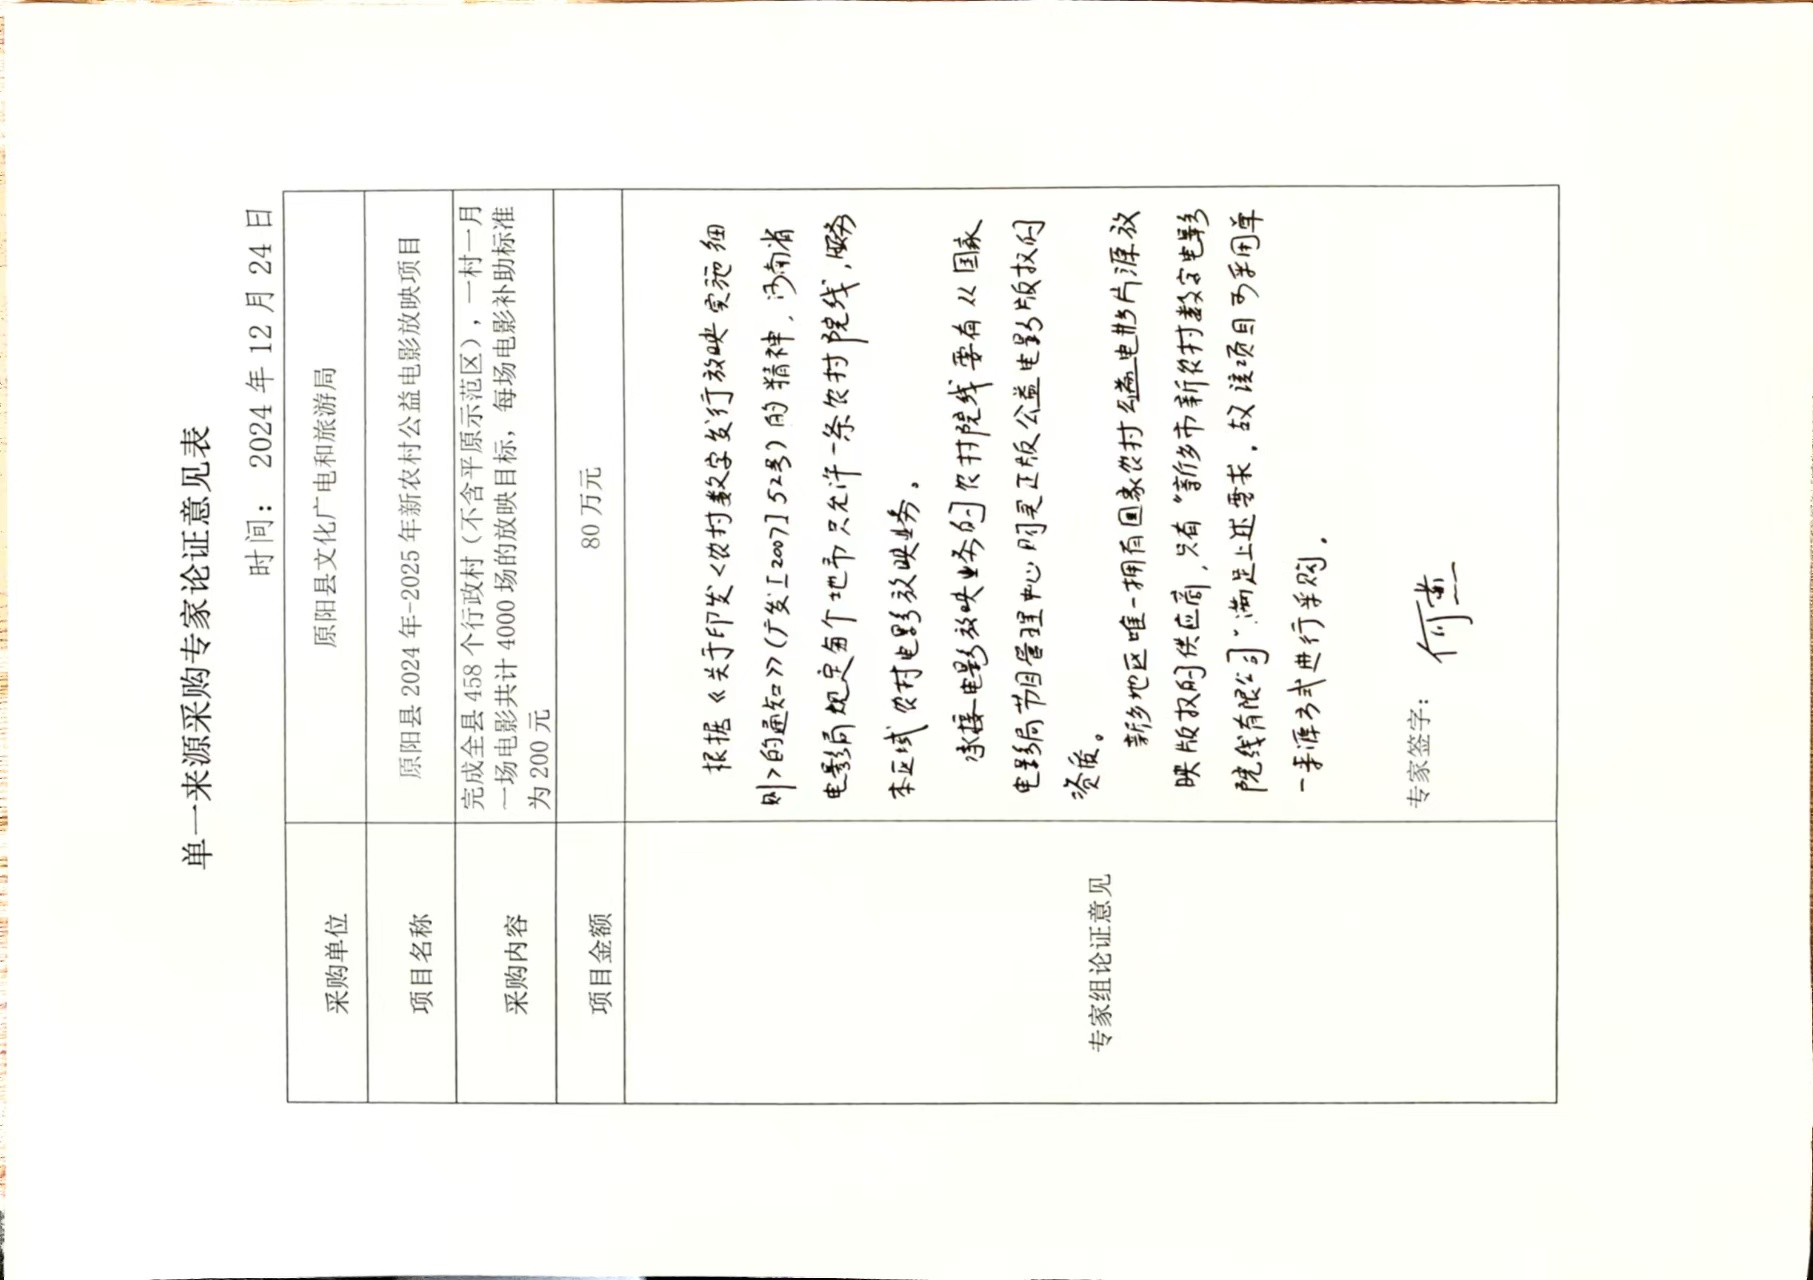 单一来源采购专家论证意见表
时间：2024年12月24日
采购单位
原阳县文化广电和旅游局
项目名称
原阳县2024年-2025年新农村公益电影放映项目
采购内容
完成全县458个行政村（不含平原示范区），一村一月
一场电影共计4000场的放映目标，每场电影补助标准
为200元
项目金额
80万元
专家组论证意见
根据《关于印发<农村数字发行放映实施细
则>的通知>>(广发[2007]52号)的精神，河南省
电影局规定每个地市只允许一条农村院线，服务
本区域农村电影放映业务。
承接电影放映业务的农村院线要有从国家
电影局节目管理中心购买正版公益电影版权的
资质。
新乡地区唯一拥有国家农村公益电影片源放
映版权的供应商，只有“新乡市新农村数字电影
院线有限公司”满足上述要求，故该项目可采用单
一来源方式进行采购。
专家签字：